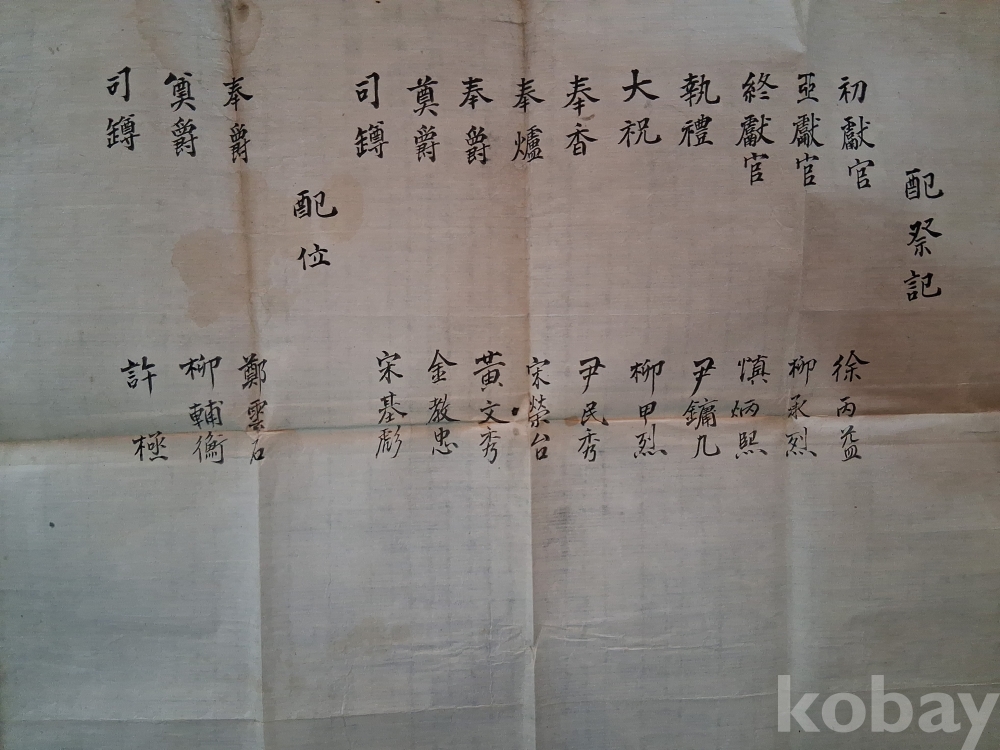 配祭記
初獻官 徐丙益
亞獻官 柳承烈
終獻官 愼炳熙
執禮 尹鏞九
大祝 柳甲烈
奉香 尹民秀
奉爐 宋榮台
奉爵 黃文秀
奠爵 金敎忠
司罇 宋基彪
配位
奉爵 鄭雲石
奠爵 柳輔衡
司罇 許極
kobay